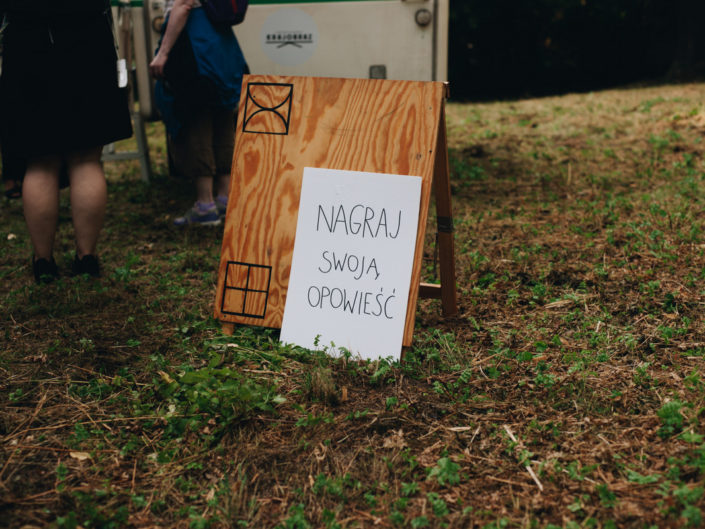 KRAJOBRAZ
NAGRAJ
SWOJĄ
OPOWIEŚĆ